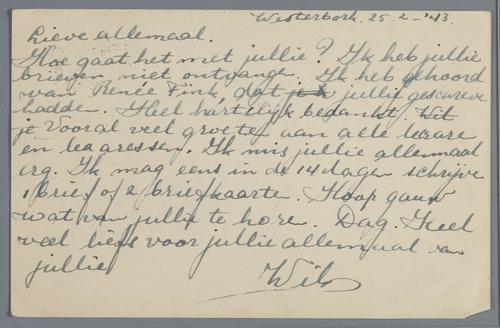 Westerbork. 25-2-'43.
Lieve allemaal.
Hoe gaat het met jullie? Ik heb jullie
brieven niet ontvange. Ik heb gehoord
van Renée Fink, dat jullie gescureve
hadde. Heel hartelijk bedankt. Wil
je Vooral veel groeten aan alle lerare
en leraressen. Ik mis jullie allemaal
erg. Ik mag eens in de 14 dagen schrijve
1 brief of 2 briefkaarte. Hoop gauw
wat van jullie te hore. Dag. Heel
veel liefs voor jullie allemaal van
jullie
Wil